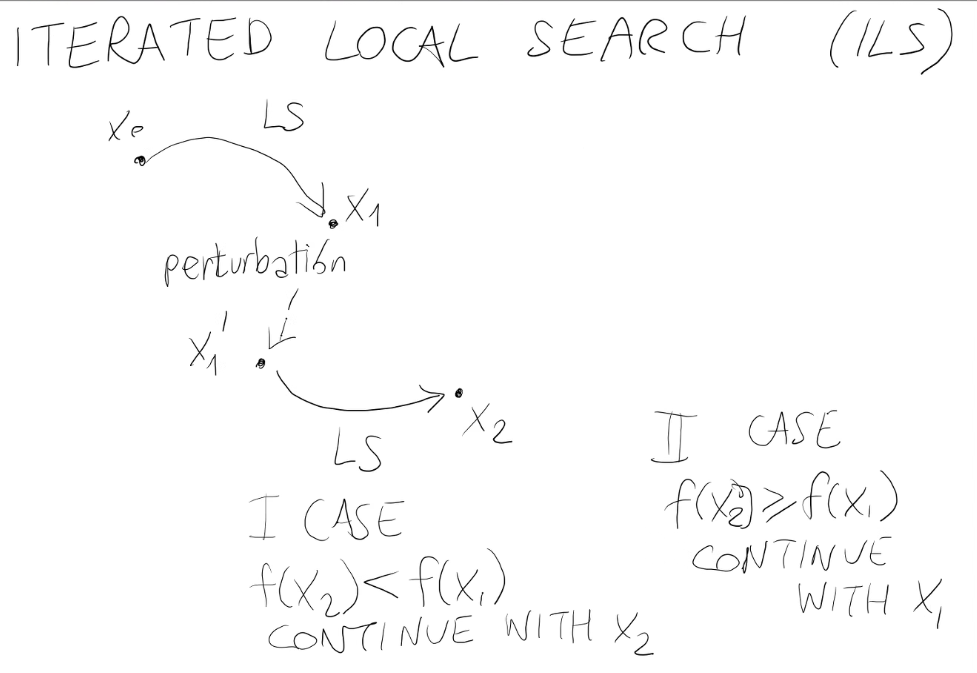 ITERATED LOCAL SEARCH (ILS)
LS
x₀
x₁
perturbation
x₁'
x₂
LS
I CASE
f(x₂) < f(x₁)
CONTINUE WITH x₂
II CASE
f(x₂) ≥ f(x₁)
CONTINUE
WITH x₁